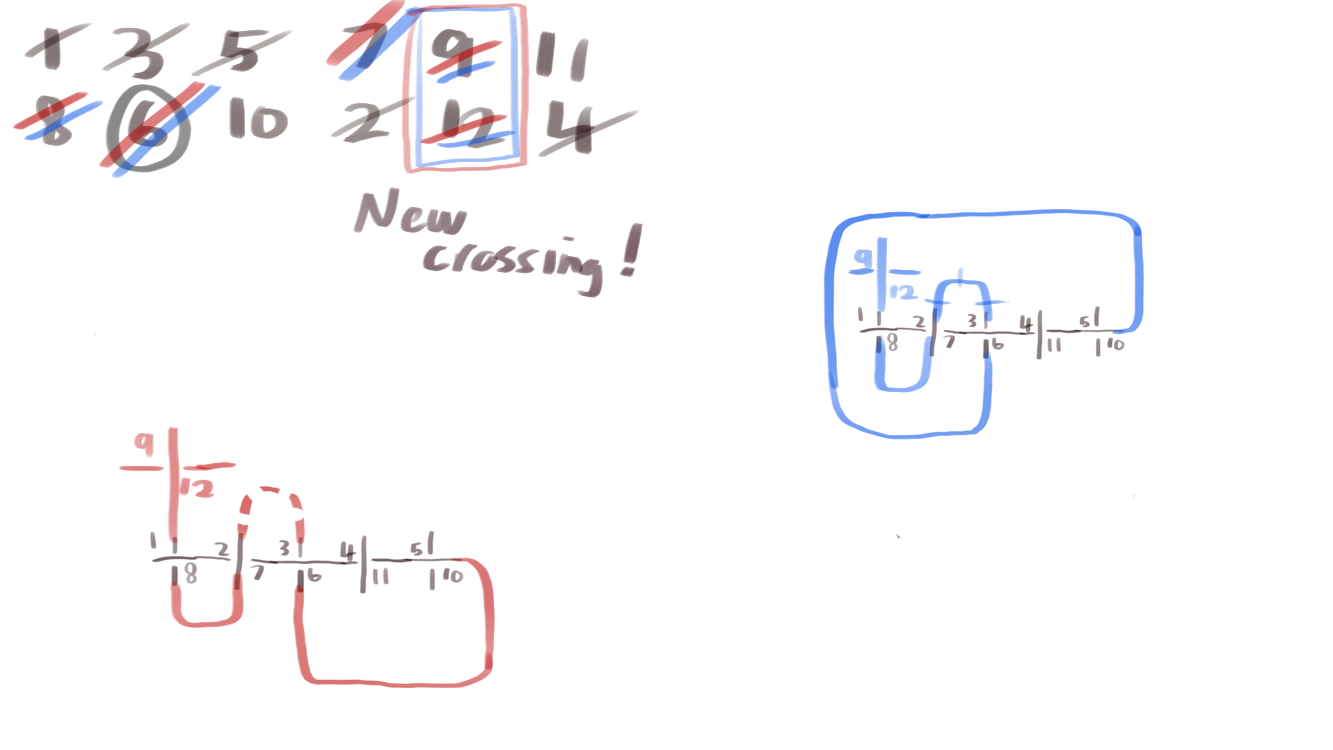 1 3 5 7 9 11
8 6 10 2 12 4
New
crossing!
9
12
1 2 3 4 5
8 7 6 11 10
9
12
1 2 3 4 5
8 7 6 11 10